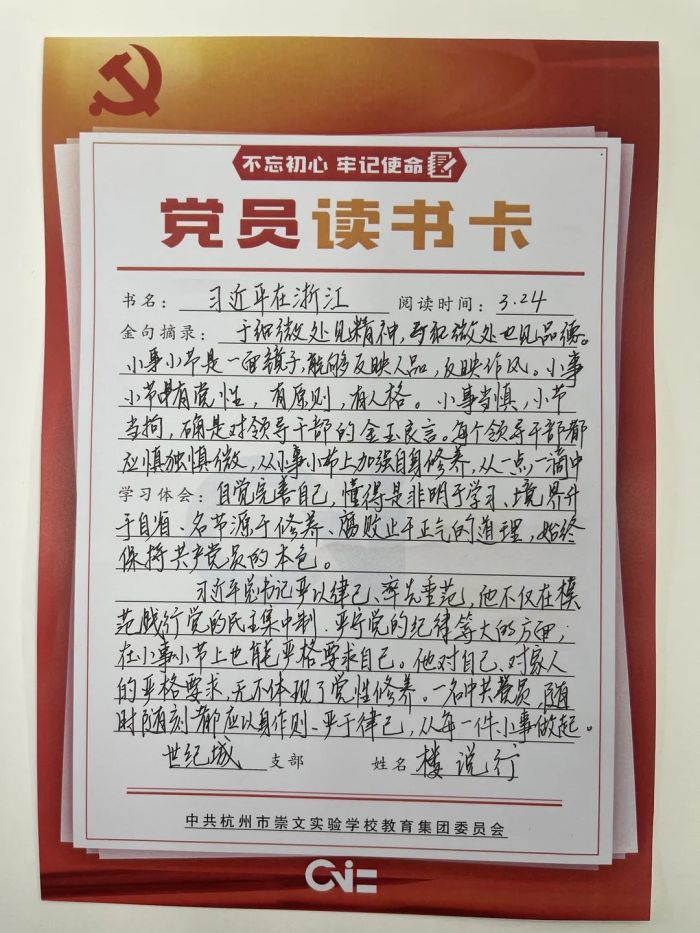 不忘初心 牢记使命
党员读书卡
书名：习近平在浙江 阅读时间：3.24
金句摘录：于细微处见精神，于细微处也见品德。
小事小节是一面镜子，能够反映人品，反映作风。小事
小节中有党性，有原则，有人格。小事当慎，小节
当拘，确是对领导干部的金玉良言。每个领导干部都
应慎独慎微，从小事小节上加强自身修养，从一点一滴中
学习体会：自觉完善自己，懂得是非明于学习、境界升
于自省、名节源于修养、腐败止于正气的道理，始终
保持共产党员的本色。
习近平总书记严以律己、率先垂范，他不仅在模
范践行党的民主集中制、严守党的纪律等大的方面；
在小事小节上也能严格要求自己。他对自己、对家人
的严格要求，无不体现了党性修养。一名中共党员，随
时随刻都应以身作则、严于律己，从每一件小事做起。
世纪城 支部 姓名 楼说行
中共杭州市崇文实验学校教育集团委员会